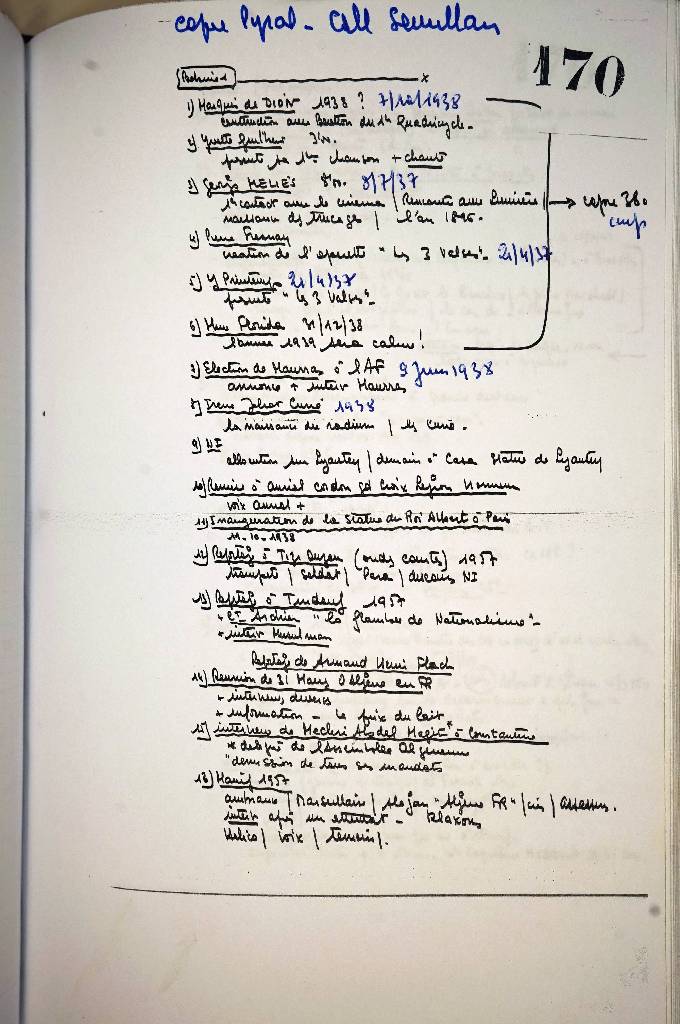 copie Pyral - Coll
170
1) Marquis de DION 1938 ? 7/10/1938
construction avec Boutton du 1er Quadricycle.
2) Yvette Guilbert
sa 1ère chanson + chante
3) Georges MELIES 8/7/37
1er contact avec le cinema | Rencontre avec Lumière |
naissance des trucages | l'an 1895.
→ copie 38
4) Pierre Fresnay
creation de l'operette "les 3 Valses". 21/4/37
5) Y Printemps 21/4/37
"les 3 Valses".
6) Mme Florida 31/12/38
l'année 1939 sera calme !
7) Election de Maurras à l'AF 9 Juin 1938
annonce + interv Maurras
8) Irene Joliot Curie 1938
la naissance du radium | les Curie.
9) NI
allocution sur Lyautey | demain à Casa Statue de Lyautey
10) Remise à cordon gd Croix Legion Honneur
voix +
11) Inauguration de la Statue du Roi Albert à Paris
11-10-1938
12) Reportage à Tizi Ouzou (ondes courtes) 1957
trompette | Soldat | Para | discours NI
13) Reportage à Tindouf 1957
+ Lt "la flambée de Nationalisme".
+ interv Musulman
Reportage de Armand Henri Flach
14) Reunion de 31 Maires d'Algérie en FR
+ interviews diverses
+ information - le prix du lait
15) interview de Mechri Abdel * à Constantine
* delegué de l'Assemblée Algerienne
"demission de tous ses mandats
16) 1957
ambiance | Marseillaise | slogan "Algérie FR" | cris |
interv après un attentat - klaxons
Helico | voix | temoins |.